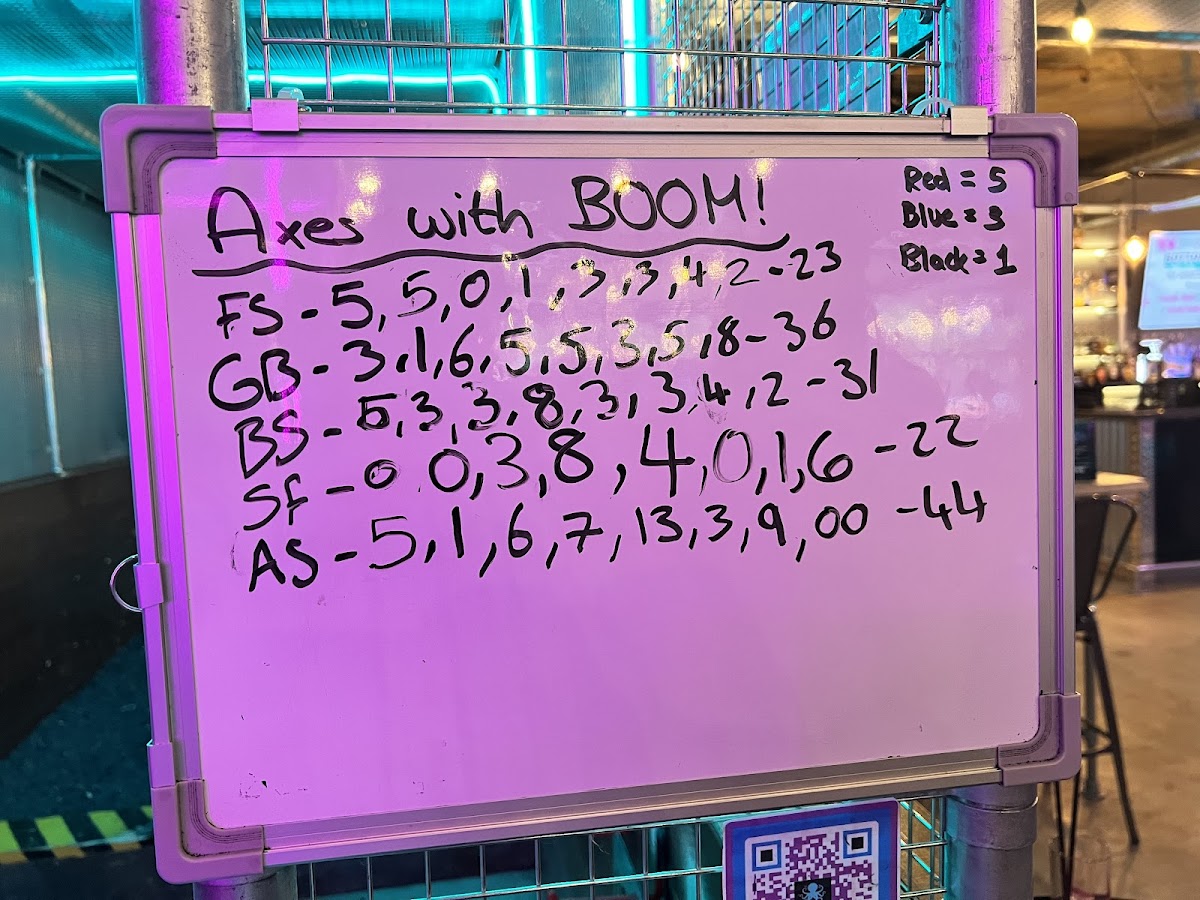 Axes with BOOM!
Red = 5
Blue = 3
Black = 1
FS - 5, 5, 0, 1, 3, 3, 4, 2 - 23
GB - 3, 1, 6, 5, 5, 3, 5, 8 - 36
BS - 5, 3, 3, 8, 3, 3, 4, 2 - 31
SF - 0 0, 3, 8, 4, 0, 1, 6 - 22
AS - 5, 1, 6, 7, 13, 3, 9, 00 - 44